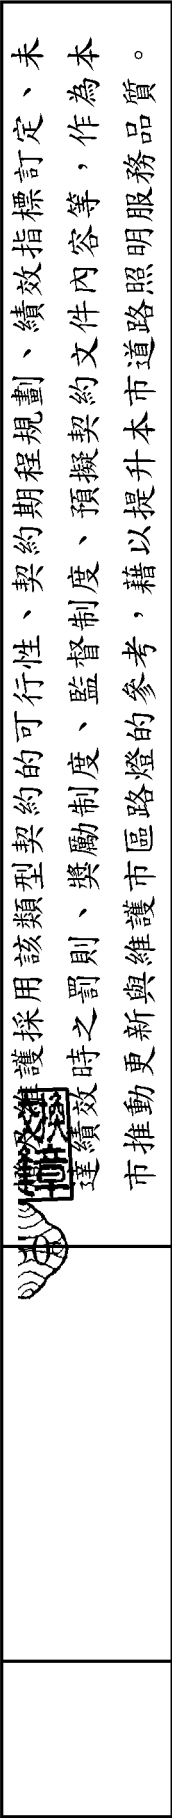 護採用該類型契約的可行性、契約期程規劃、績效指標訂定、未
達績效時之罰則、獎勵制度、監督制度、預擬契約文件內容等，作為本
市推動更新與維護市區路燈的參考，藉以提升本市道路照明服務品質。